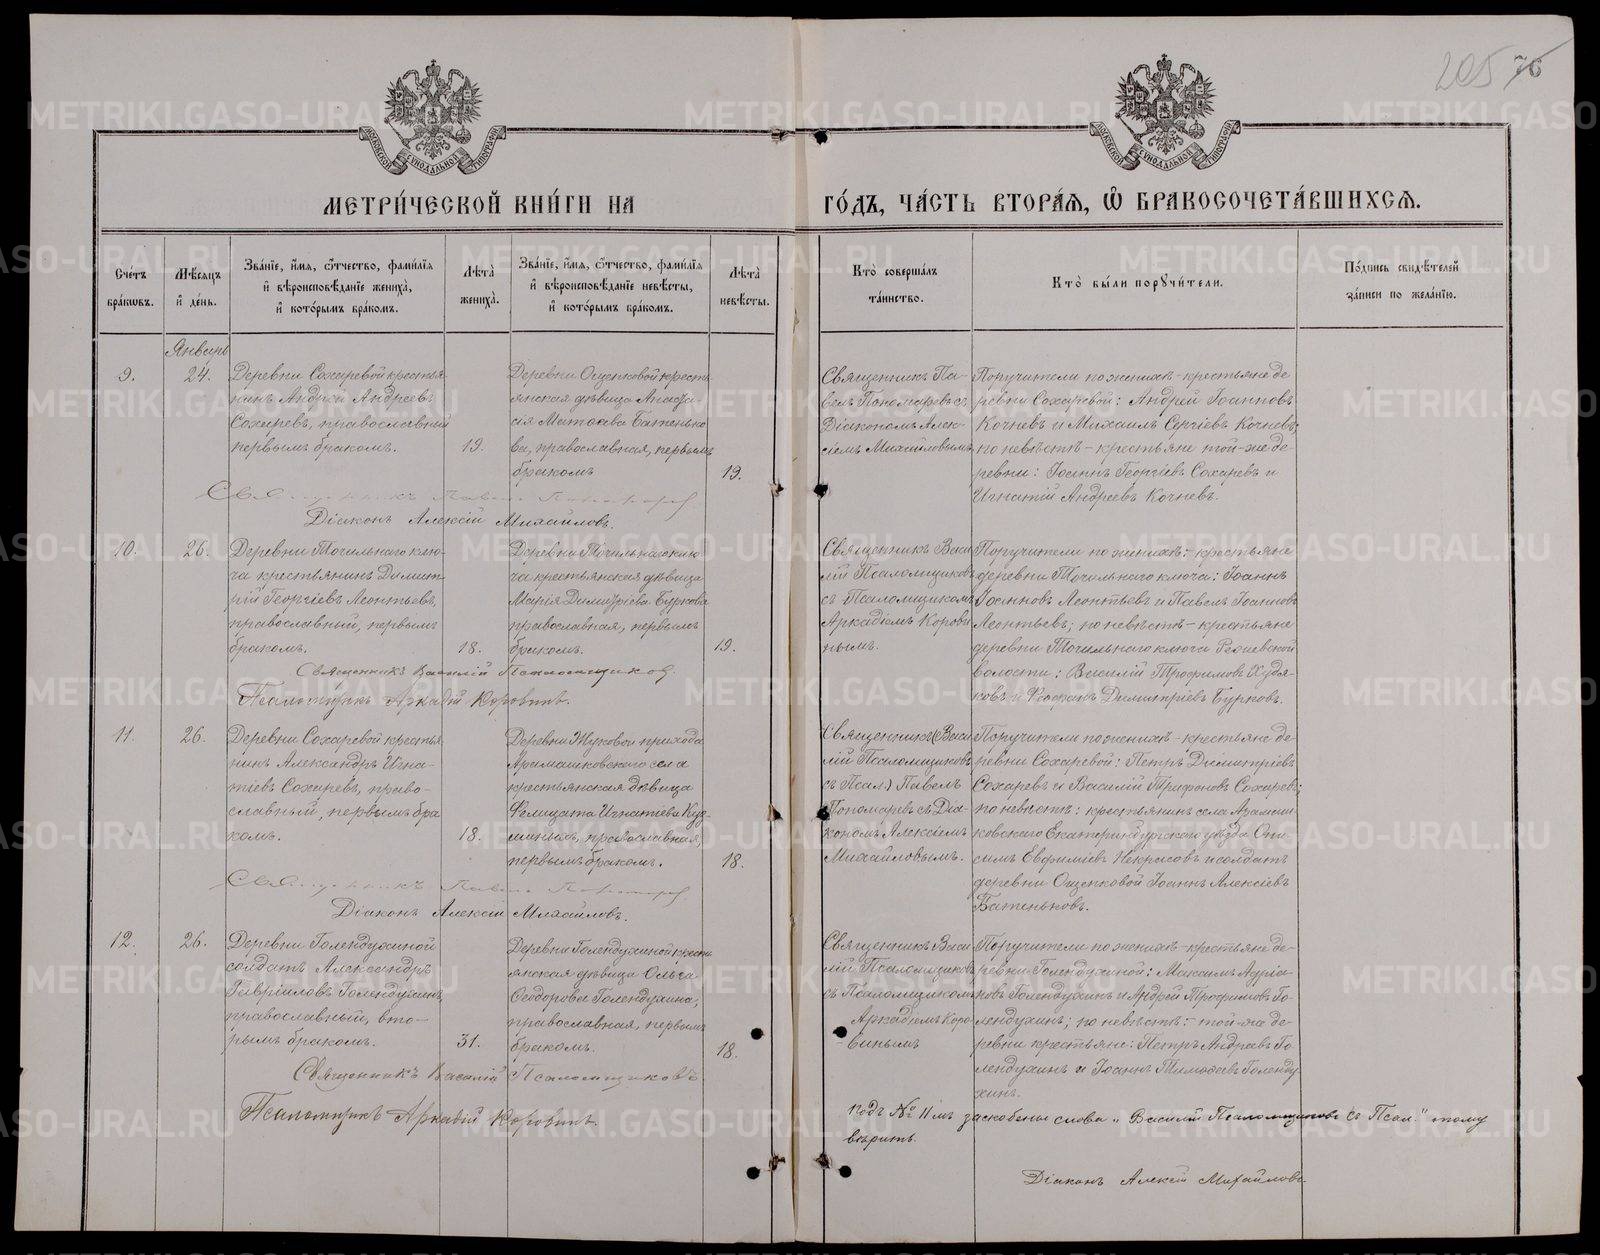 205 76
МЕТРИ́ЧЕСКОЙ КНИ́ГИ НА
ГО́ДЪ, ЧА́СТЬ ВТОРА́Я, Ѡ҆ БРАКОСОЧЕТА́ВШИХСЯ.
Сче́тъ бра́кѡвъ.
Мѣ́сяцъ и҆ де́нь.
Зва́нїе, и҆́мя, ѻ҆́тчество, фами́лїя и҆ вѣроисповѣ́данїе жениха̀, и҆ кото́рымъ бра́комъ.
Лѣ́та жениха̀.
Зва́нїе, и҆́мя, ѻ҆́тчество, фами́лїя и҆ вѣроисповѣ́данїе невѣ́сты, и҆ кото́рымъ бра́комъ.
Лѣ́та невѣ́сты.
Кто̀ соверша́лъ та́инство.
Кто̀ бы́ли порꙋчи́тели.
По́дпись свидѣ́телей за́писи по жела́нїю.
Январь
9.
24.
Деревни Сохаревой крестья-
нинъ Андрей Андреевъ
Сохаревъ, православный
первымъ бракомъ.
19.
Деревни Ощепковой кресть-
янская дѣвица
Батенько-
ва, православная, первымъ
бракомъ
19.
Священникъ Па-
велъ Пономаревъ съ
Діакономъ Алек-
сіемъ Михайловымъ
Поручители по женихѣ - крестьяне де-
ревни Сохаревой: Андрей Іоанновъ
Кочневъ и Михаилъ Сергіевъ Кочневъ;
по невѣстѣ - крестьяне той-же де-
ревни: Іоаннъ Георгіевъ Сохаревъ и
Игнатій Андреевъ Кочневъ.
Священникъ Павелъ Пономаревъ
Діаконъ Алексій Михайловъ.
10.
26.
Деревни Точильнаго клю-
ча крестьянинъ Димит-
рій Георгіевъ Леонтьевъ,
православный, первымъ
бракомъ.
18.
Деревни Точильнаго клю-
ча крестьянская дѣвица
Марія Димитріева Буркова
православная, первымъ
бракомъ.
19.
Священникъ Васи-
лій Псаломщиковъ
съ Псаломщикомъ
Аркадіемъ Корови-
нымъ.
Поручители по женихѣ: крестьяне
деревни Точильнаго ключа: Іоаннъ
Іоанновъ Леонтьевъ и Павелъ Іоанновъ
Леонтьевъ; по невѣстѣ - крестьяне
деревни Точильнаго ключа Режевской
волости: Василій Трофимовъ Худя-
ковъ и Феофанъ Димитріевъ Бурковъ.
Священникъ Василій Псаломщиковъ.
Псаломщикъ Аркадій Коровинъ.
11.
26.
Деревни Сохаревой крестья-
нинъ Александръ Игна-
тіевъ Сохаревъ, право-
славный, первымъ бра-
комъ.
18.
Деревни Жуковой прихода
Арамашковскаго села
крестьянская дѣвица
Фелицата Игнатіева Куз-
миныхъ, православная,
первымъ бракомъ.
18.
Священникъ (Васи-
лій Псаломщиковъ
съ Псал.) Павелъ
Пономаревъ съ Діа-
кономъ Алексіемъ
Михайловымъ.
Поручители по женихѣ - крестьяне де-
ревни Сохаревой: Петръ Димитріевъ
Сохаревъ и Василій Трифоновъ Сохаревъ;
по невѣстѣ: крестьянинъ села Арамаш-
ковскаго Екатеринбургскаго уѣзда Они-
симъ Евфиміевъ Некрасовъ и солдатъ
деревни Ощепковой Іоаннъ Алексіевъ
Батеньковъ.
Священникъ Павелъ Пономаревъ
Діаконъ Алексій Михайловъ.
12.
26.
Деревни Голендухиной
солдатъ Александръ
Гавріиловъ Голендухинъ,
православный, вто-
рымъ бракомъ.
31.
Деревни Голендухиной кресть-
янская дѣвица Ольга
Ѳеодорова Голендухина,
православная, первымъ
бракомъ.
18.
Священникъ Васи-
лій Псаломщиковъ
съ Псаломщикомъ
Аркадіемъ Коро-
винымъ
Поручители по женихѣ - крестьяне де-
ревни Голендухиной: Максимъ Адріа-
новъ Голендухинъ и Андрей Трофимовъ Го-
лендухинъ; по невѣстѣ: - той-же де-
ревни крестьяне: Петръ Андреевъ Го-
лендухинъ и Іоаннъ Тимофеевъ Голенду-
хинъ.
Священникъ Василій Псаломщиковъ.
Псаломщикъ Аркадій Коровинъ.
Подъ № 11мъ заскобены слова „Василій Псаломщиковъ съ Псал." тому
вѣрить.
Діаконъ Алексій Михайловъ.